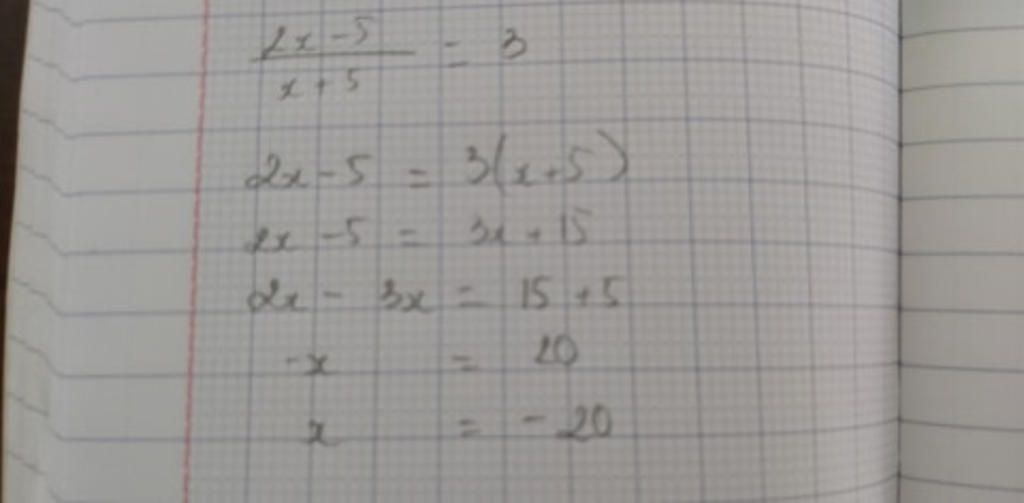 2x - 5 / x + 5 = 3
2x - 5 = 3(x + 5)
2x - 5 = 3x + 15
2x - 3x = 15 + 5
-x = 20
x = - 20